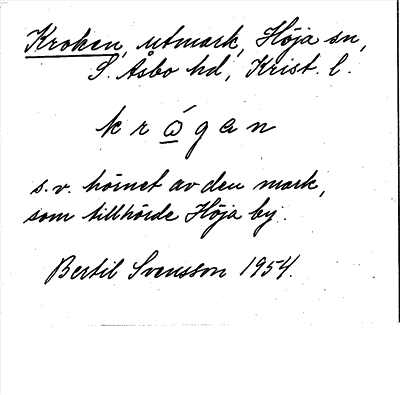 Kroken, utmark, Höja sn,
S. Åsbo hd, Krist. l.
k r ǻ g a n
s.v. hörnet av den mark,
som tillhörde Höja by.
Bertil Svensson 1954.